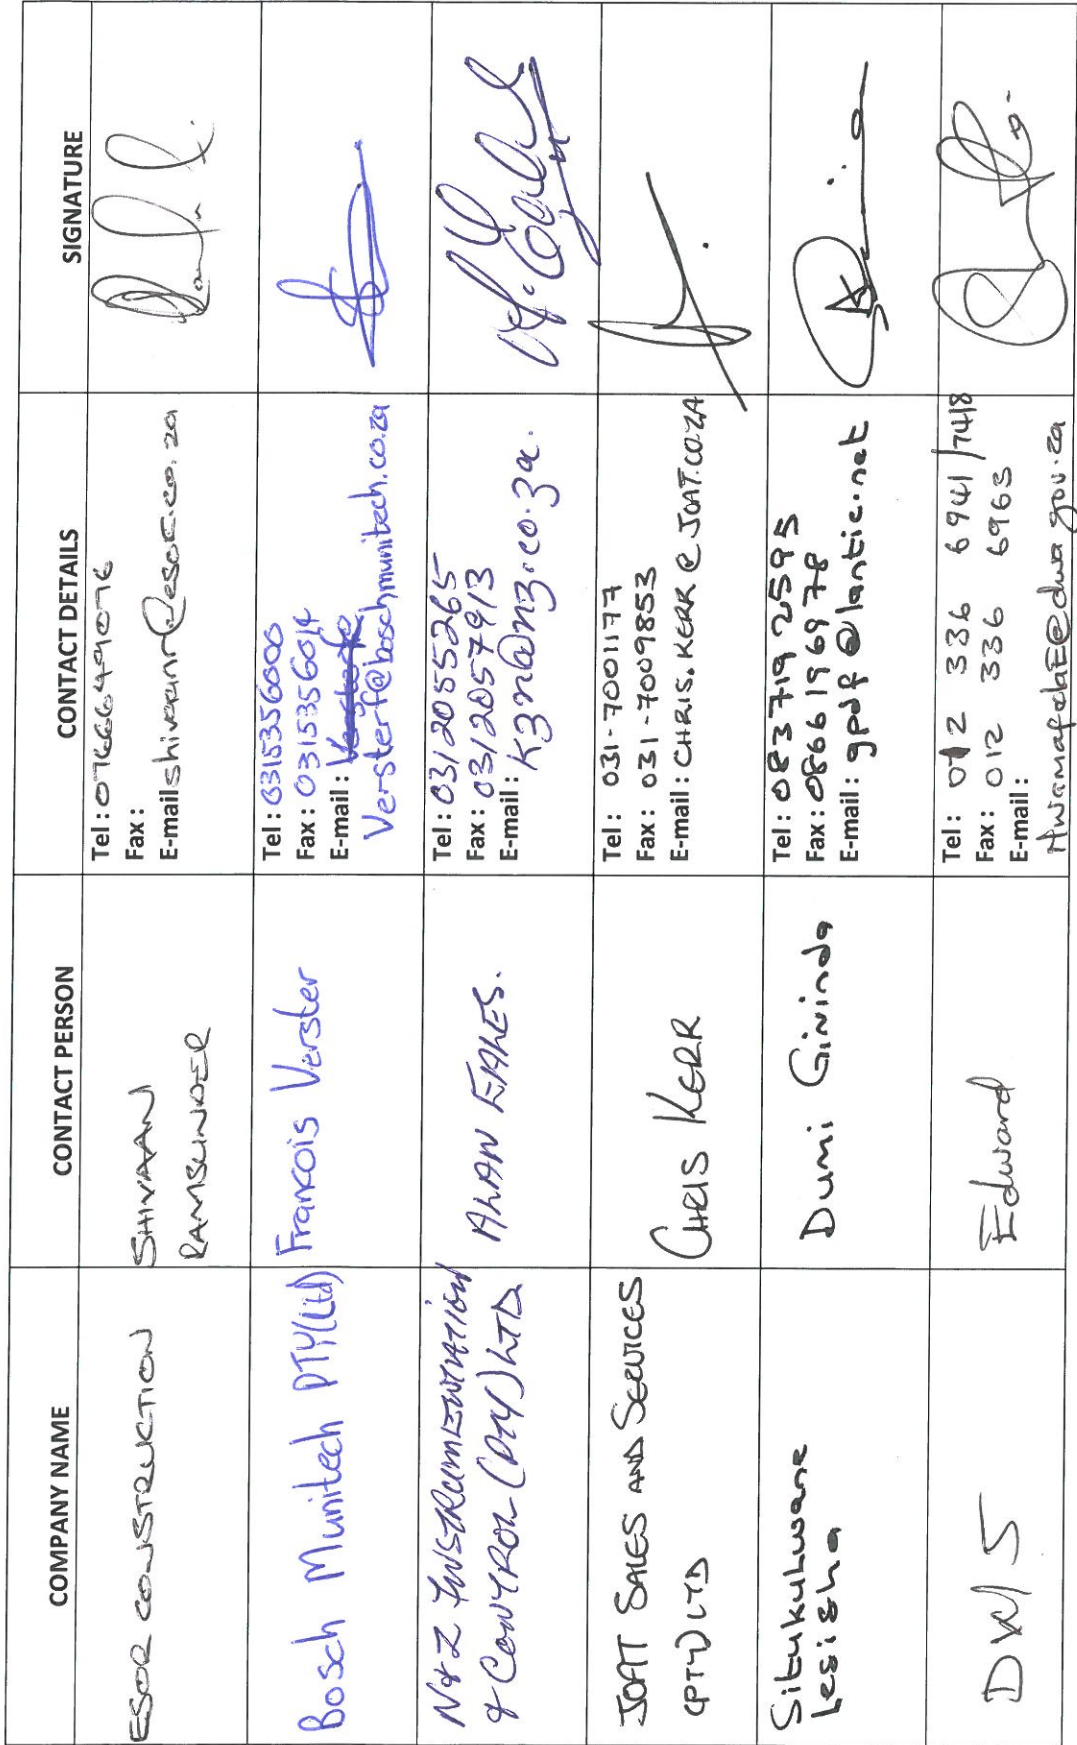 COMPANY NAME
CONTACT PERSON
CONTACT DETAILS
SIGNATURE
ESOR CONSTRUCTION
SHIVAAN
RAMSUNDER
Tel : 0766649076
Fax :
E-mail
Bosch Munitech PTY(Ltd)
Francois Verster
Tel : 0315356000
Fax : 0315356014
E-mail :
Versterf@boschmunitech.co.za
N & Z INSTRUMENTATION
& CONTROL (PTY) LTD
ALAN EALES.
Tel : 0312055265
Fax : 0312057913
E-mail :
K3n@n3.co.za.
JOAT SALES AND SERVICES
(PTY) LTD
CHRIS KERR
Tel : 031-7001177
Fax : 031-7009853
E-mail : CHRIS.KERR@JOAT.CO.ZA
Situkulwane
Lesisha
Dumi Gininda
Tel : 083 719 2595
Fax : 0866196978
E-mail : gpdf@lantic.net
DWS
Edward
Tel : 012 336 6941/7418
Fax : 012 336 6963
E-mail :